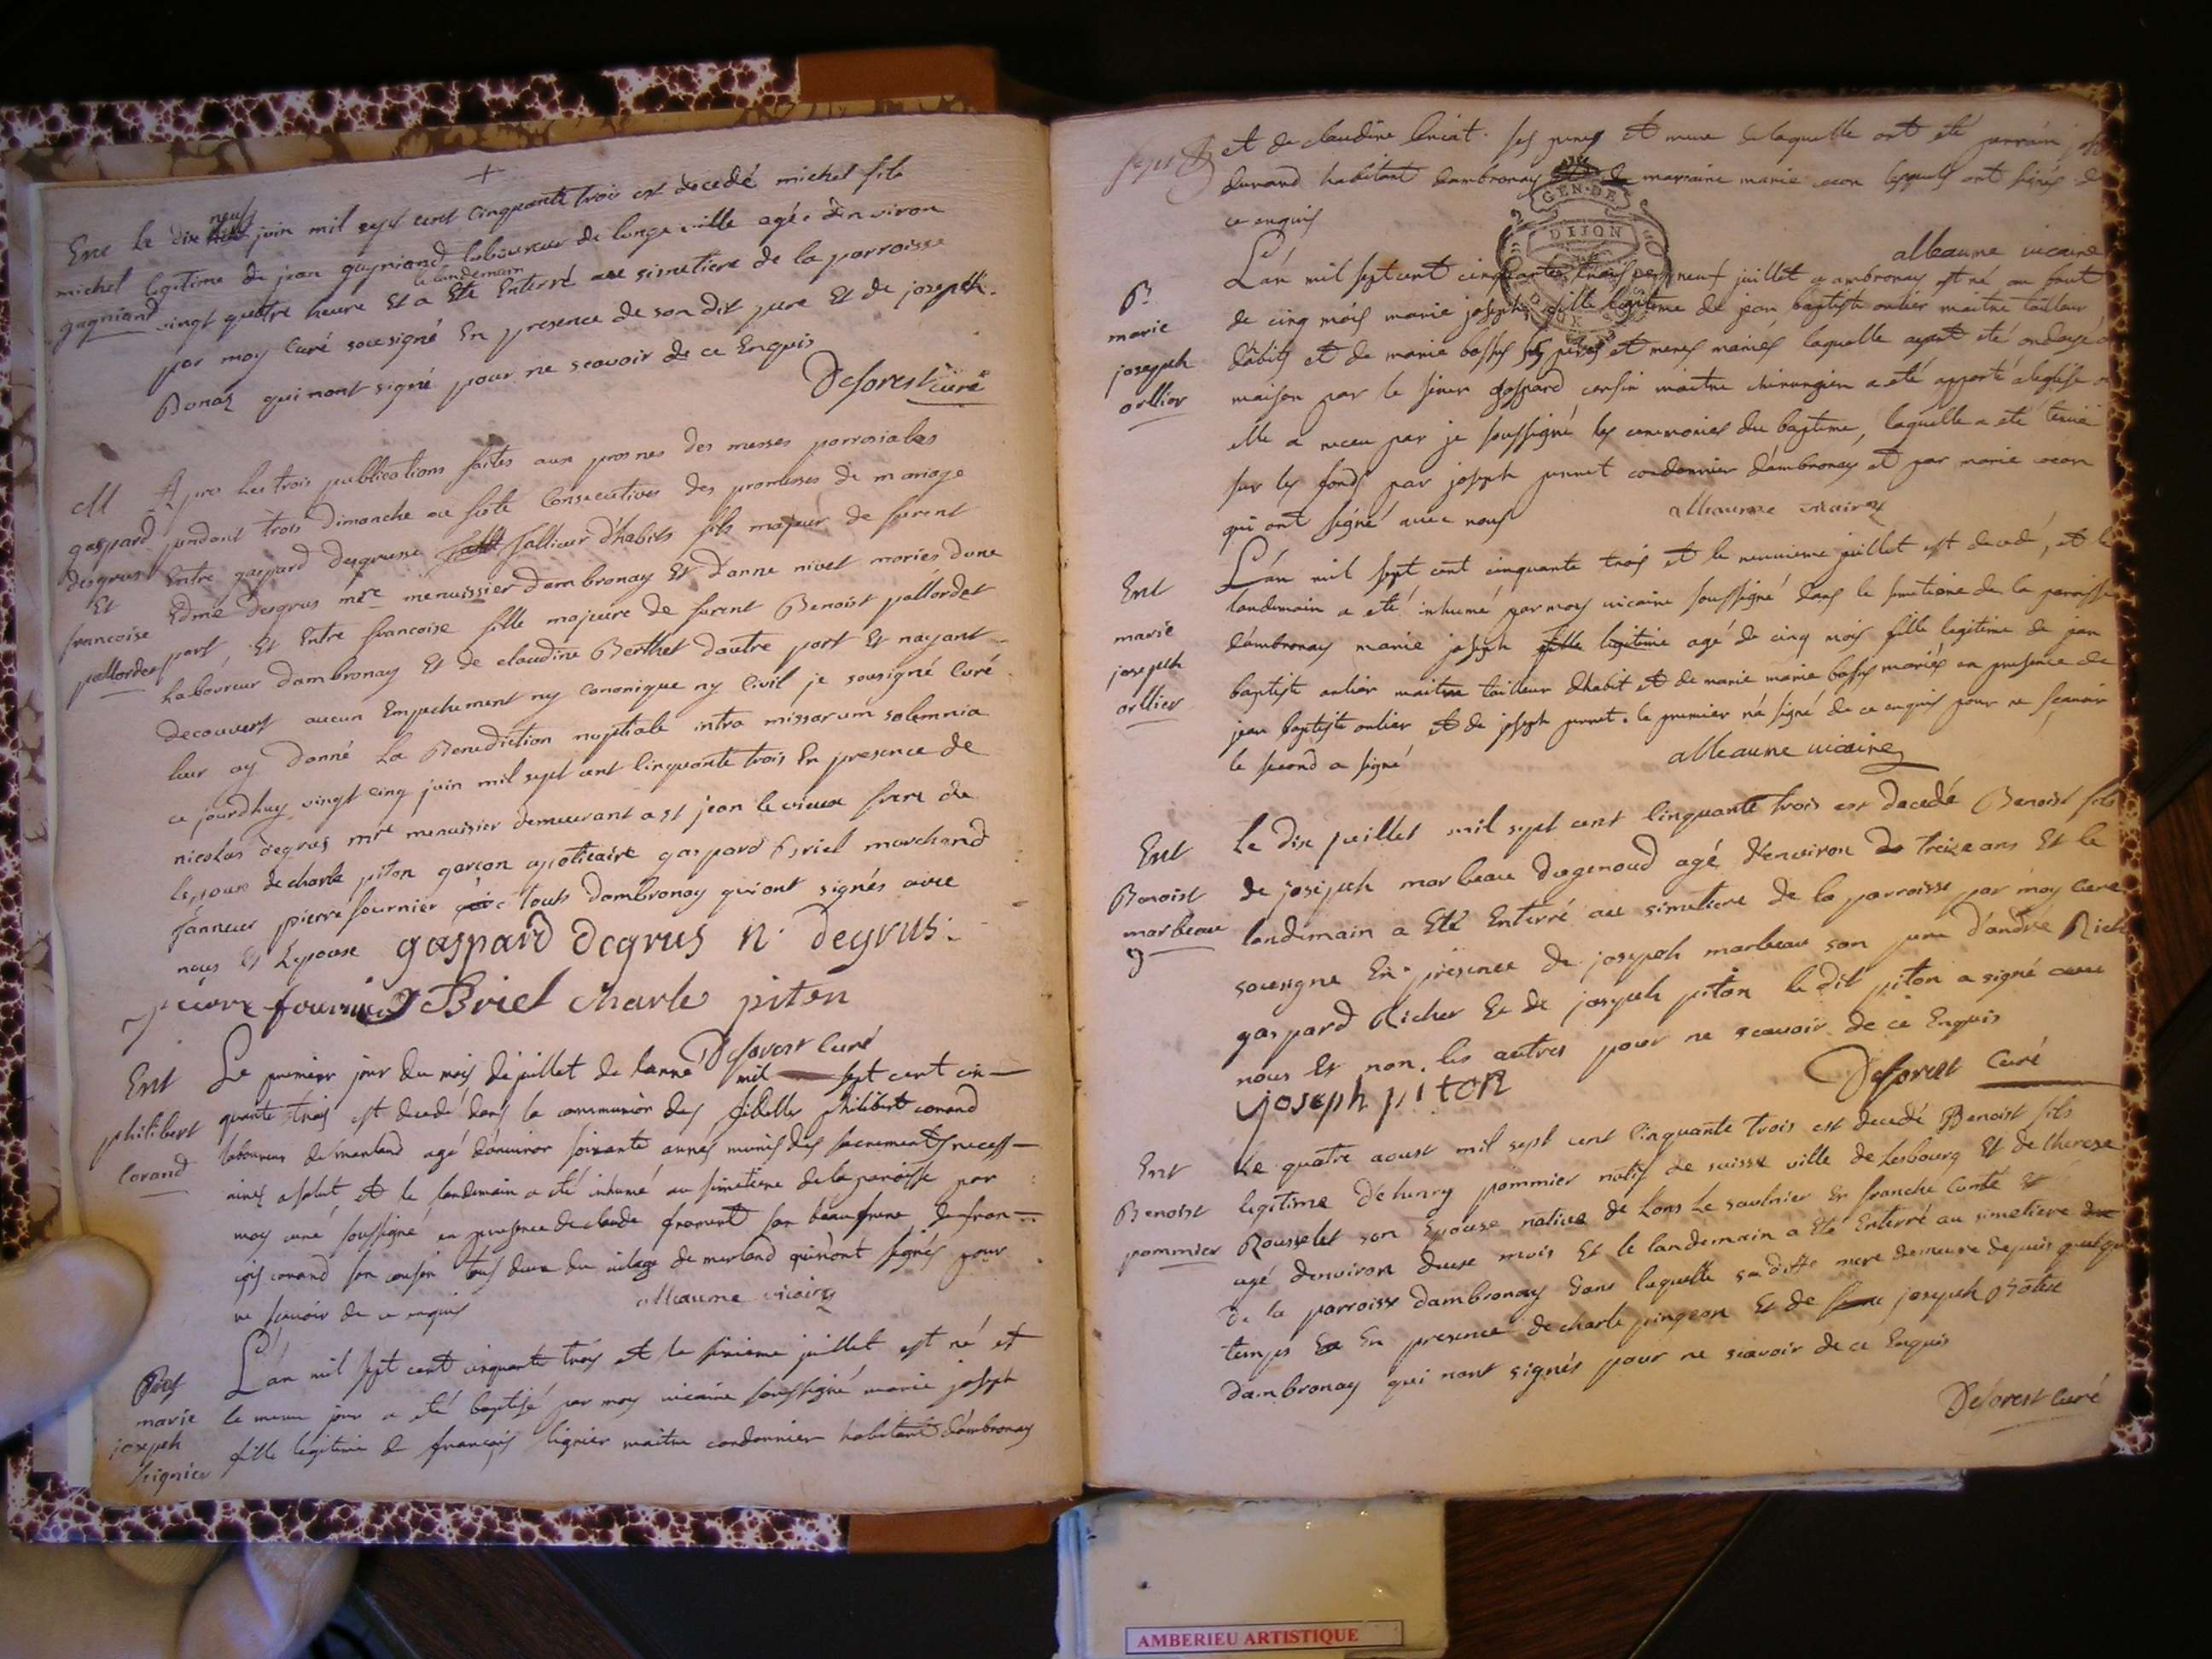 Ent le dix neuf juin mil sept cent cinquante trois est decedé michel fils
michel legitime de jean gagniand laboureur de longeville agé denviron
gagniand vingt quatre heure Et a Eté Enterré le landemain au simetiere de la parroisse
par moy Curé sousigné En presence de son dit pere Et de joseph
Bonaz qui nont signé pour ne scavoir de ce Enquis
Deforest curé
M
gaspard
degrus
Et
francoise
pallordet
Apres Les trois publications faites aux prosnes des messes parrosiales
pendant trois Dimanche ou feste Consecutives des promesses de mariage
Entre gaspard degrusse tallieur d'habits fils majeur de furent
Edme degrus mtre menuissier dambronay Et danne nivet mariés dune
part, Et Entre francoise fille majeure de furent Benoist pallordet
Laboureur dambronay Et de claudine Berthet dautre part Et nayant
decouvert aucun Empechement ny Canonique ny Civil je sousigné Curé
leur ay donné La Benediction nuptiale intra missarum solemnia
ce jourdhuy vingt cinq juin mil sept cent Cinquante trois En presence de
nicolas degrus mtre menuisier demeurant a st jean le vieux frere de
Lepoux de charle piton garçon apoticaire gaspard Briel marchand
Tanneur pierre fournier tous dambronay qui ont signés avec
nous Et Lepouse gaspard Degrus n. degrus
pierre fournier g Briel charle piton
Deforest Curé
Ent
philibert
Corand
Le premier jour du mois de juillet de lanné mil sept cent cin-
quante trois est decedé dans la communion des fidelles philibert corand
laboureur de merland agé d'environ soixante annés munis des sacrements necess-
aires a salut, et le landemain a été inhumé au simetiere de la paroisse par
moy curé soussigné en presence de claude froment son beaufrere, de fran-
çois corand son cousin tous deux du vilage de merland qui n'ont signés pour
ne scavoir de ce enquis alleaume vicaire
Bap
marie
joseph
Lignier
L'an mil sept cent cinquante trois et le sixieme juillet est né et
le meme jour a été baptisé par moy vicaire soussigné marie joseph
fille legitime de françois lignier maitre cordonnier habitant d'ambronay
et de claudine ses peres et mere de laquelle ont été parrain
durand habitant dambronay marraine marie ont signés de
ce enquis
alleaume vicaire
B
marie
joseph
orllier
L'an mil sept cent cinquante trois neuf juillet a ambronay est né au bout
de cinq mois marie joseph fille legitime de jean baptiste orlier maitre tailleur
d'abits et de marie bassus ses peres et meres mariés laquelle ayant été ondoyé
maison par le sieur gaspard maitre chirurgien a été apporté a leglise
elle a receu par je soussigné les ceremonies du baptême, laquelle a été tenüe
sur les fonds par joseph cordonnier d'ambronay et par marie
qui ont signé avec nous alleaume vicaire
Ent
marie
joseph
orllier
L'an mil sept cent cinquante trois et le neuvieme juillet est decedé, et le
landemain a eté inhumé par moy vicaire soussigné dans le simetiere de la paroisse
d'ambronay marie joseph fille legitime agé de cinq mois fille legitime de jean
baptiste orlier maitre tailleur dhabit et de marie marie bassus mariés en presence de
jean baptiste orlier et de joseph le premier n'a signé de ce enquis pour ne scavoir
le second a signé alleaume vicaire
Ent
Benoist
marbeau
g
Le dix juillet mil sept cent Cinquante trois est decedé Benoist fils
de joseph marbeau dugenoud agé d'environ treize ans Et le
landemain a Eté Enterré au simetiere de la parroisse par moy Curé
sousigné En presence de joseph marbeau son pere d'andré Rich
gaspard Richer Et de joseph piton le dit piton a signé avec
nous Et non les autres pour ne scavoir de ce Enquis
joseph piton Deforest Curé
Ent
Benoist
pommier
Le quatre aoust mil sept cent Cinquante trois est decedé Benoist fils
legitime D'henry pommier natif de suisse ville de Lesbourg Et de therese
Rousselet son Epouse native de Lons Le saulnier En franche Comté Et
agé denviron douse mois Et le landemain a Eté Enterré au simetiere
de la parroisse dambronay dans laquelle sa ditte mere demeure depuis quelque
temps En presence de charle pingeon Et de joseph
dambronay qui nont signés pour ne scavoir de ce Enquis
Deforest Curé
GEN. DE
DIJON
AMBERIEU ARTISTIQUE